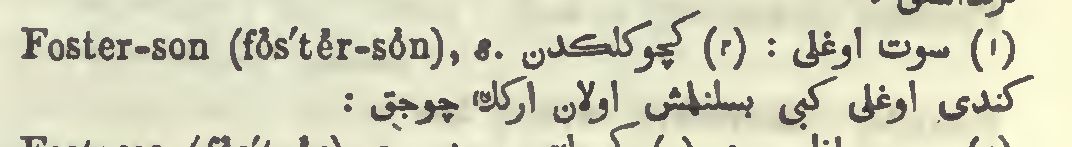 Foster-son (fŏs′tėr-sŏn), s. (١) سوت اوغلی : (٢) كچوكلكدن
كندی اوغلی كبی بسلنلمش اولان اركك چوجق :